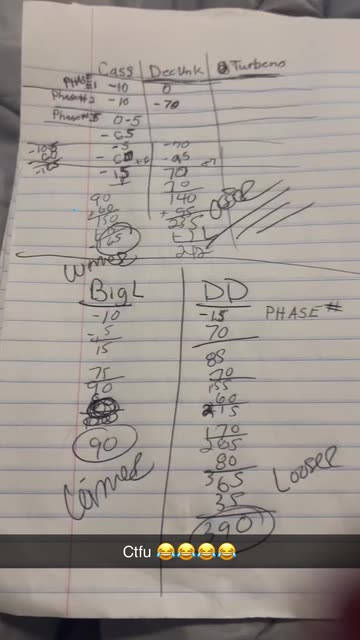 Cass DecUnk Turbeno
PHASE #1 -10 0
Phase #2 -10 -70
Phase #3 0-5
-65
-105 -5 -70
60 -60 -95
-165 -15 70
70
90 140
260 + 95
150 235
65 242
Looser
Winner
BigL DD
-10 -15 PHASE #
-5 70
15 85
75 70
90 155
60
215
90 170
285
Winner 80
365 Looser
35
390
Ctfu 😂😂😂😂